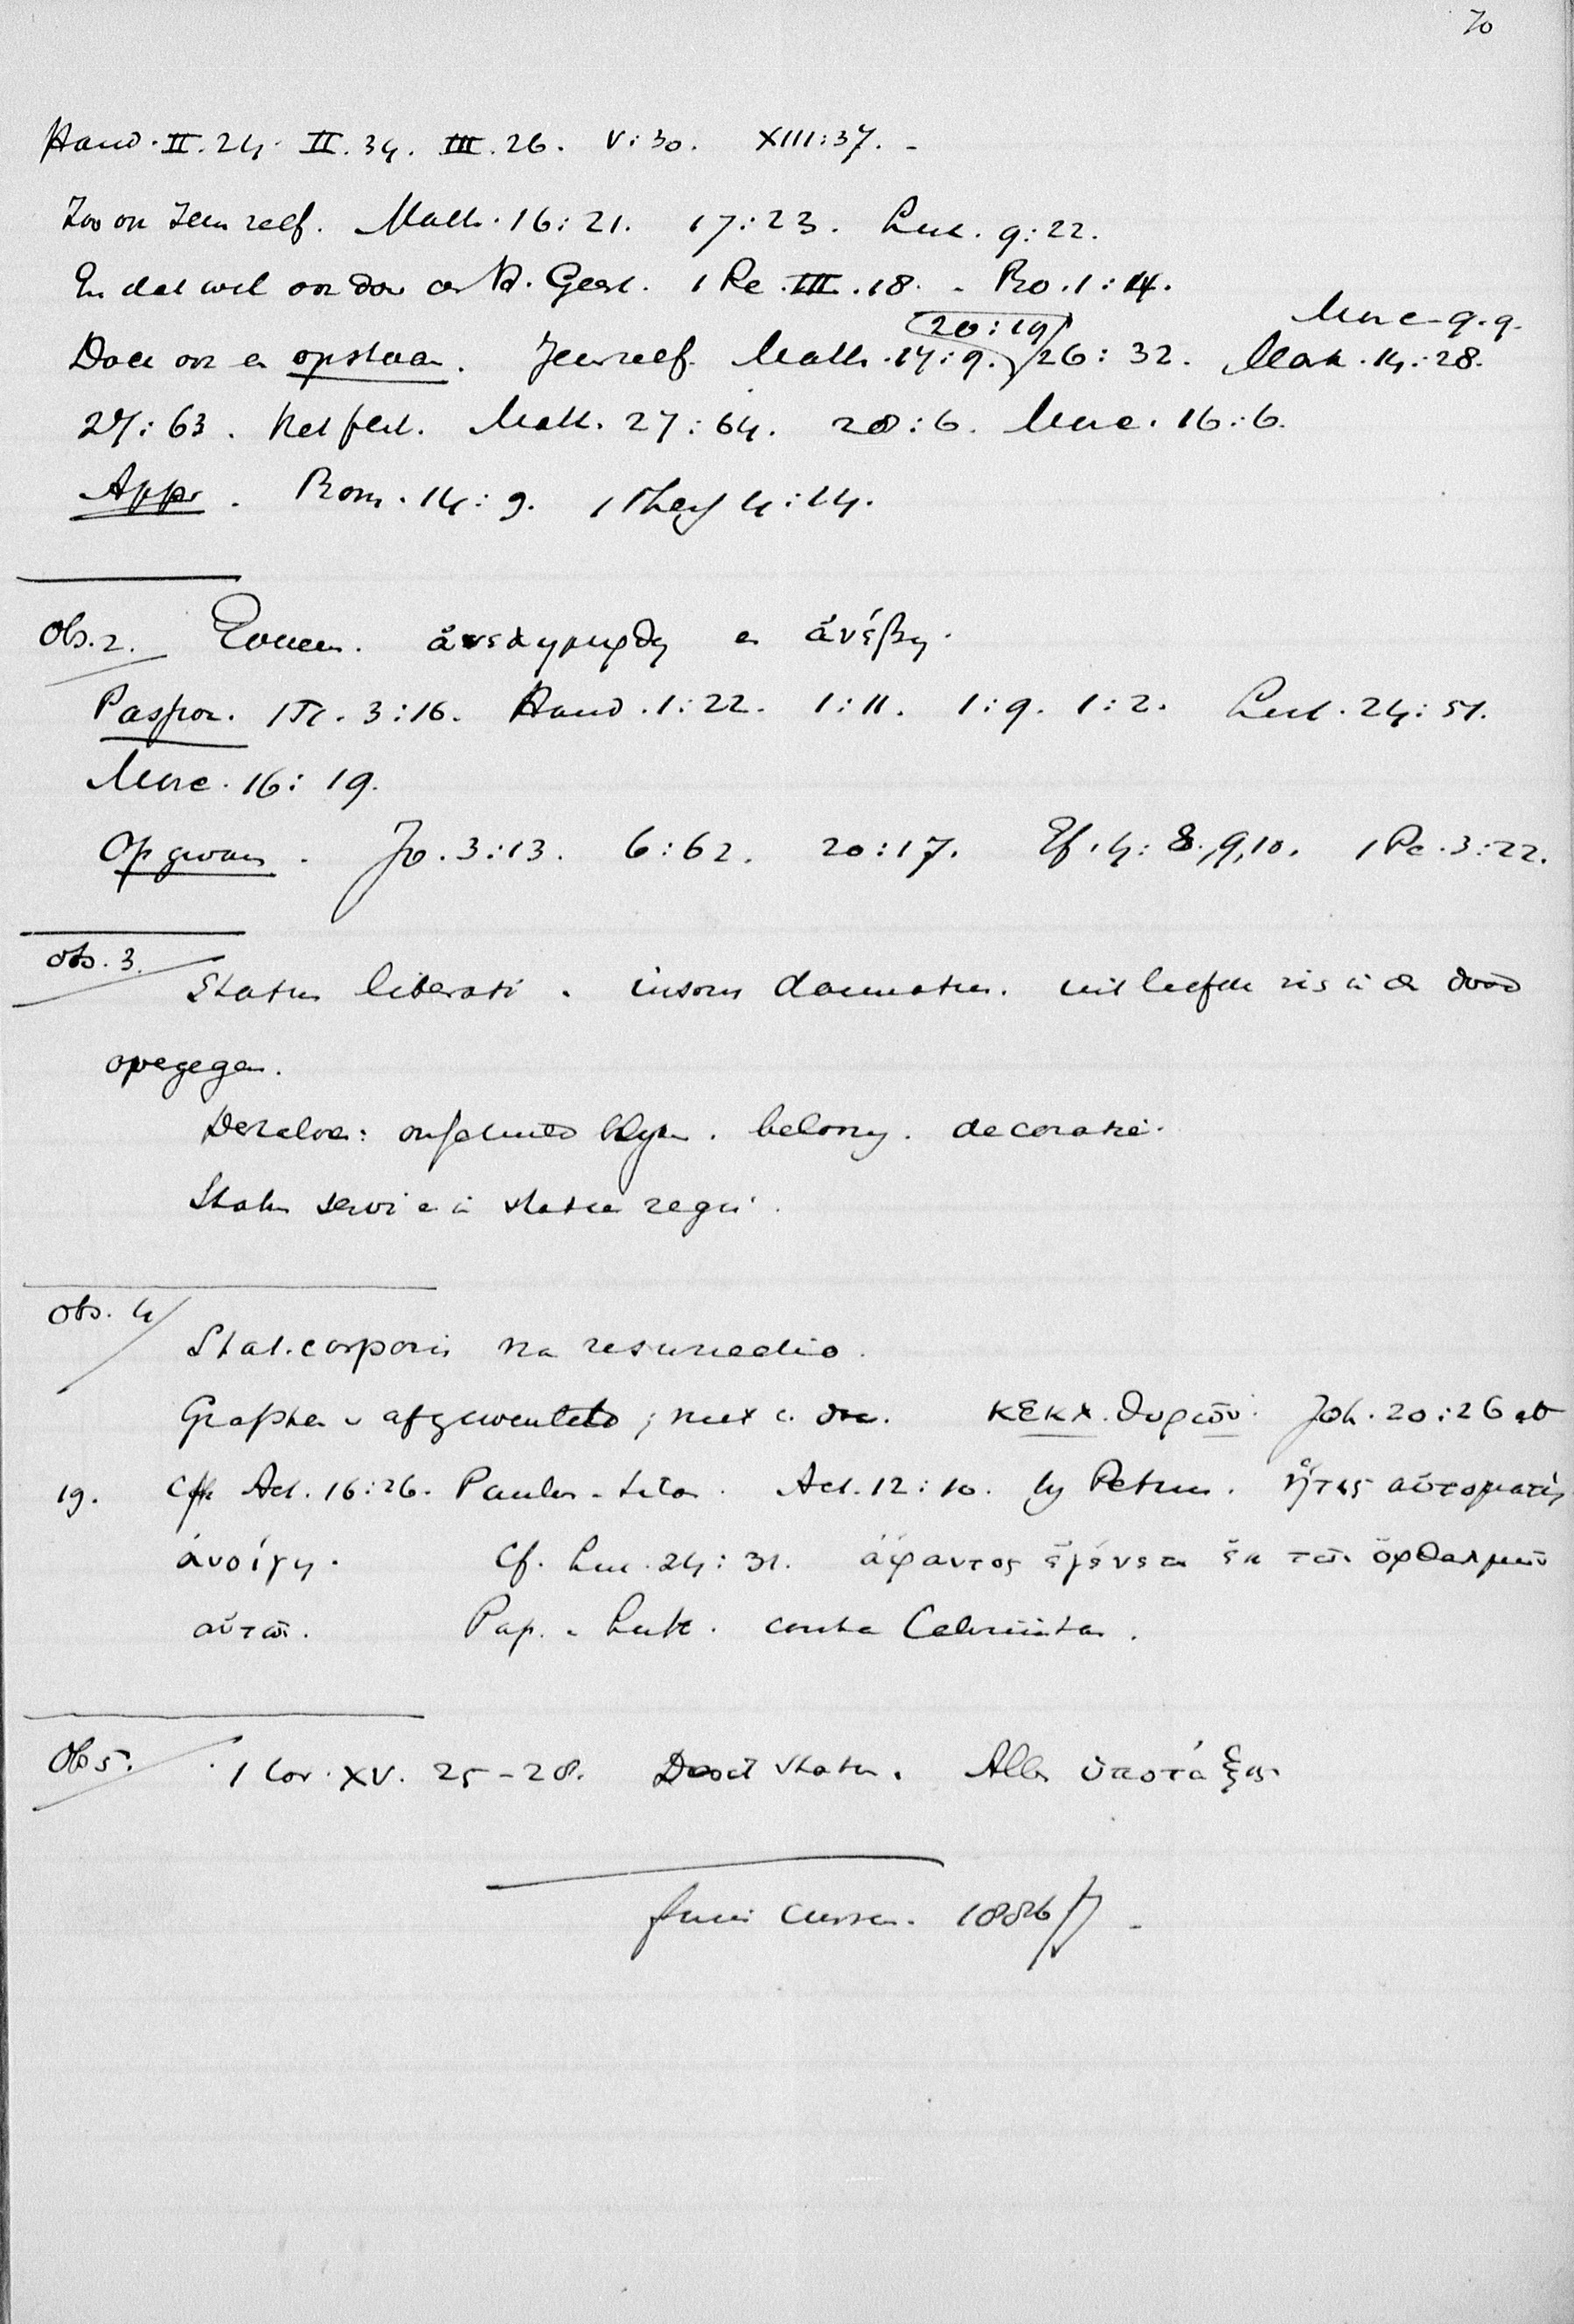 70
Hand. II. 24. II. 34. III. 26. V: 30. XIII: 37. -
Zoo ook Jezus zelf. Matth. 16: 21. 17: 23. Luc. 9: 22.
En dat wel ook door den H. Geest. 1 Pe. III. 18. - Ro. 1: 14.
20: 19 Marc. 9. 9.
Doch ook en opstaan. Jezus zelf. Matth. 17: 9. 26: 32. Mark. 14: 28.
27: 63. Het feit. Matt. 27: 64. 28: 6. Marc. 16: 6.
App. Rom. 14: 9. 1 Thess 4: 14.
Obs. 2. Evenzoo. ἀνελημφθη en ἀνέβη.
Passion. 1 Ti. 3: 16. Hand. 1: 22. 1: 11. 1: 9. 1: 2. Luc. 24: 51.
Marc. 16: 19.
Opgevaren. Jo. 3: 13. 6: 62. 20: 17. Ef. 4: 8, 9, 10. 1 Pe. 3: 22.
Obs. 3.
Status liberati. insons damnatus. uit liefde zich in den dood
overgegeven.
Dezelve: onschuld blijken. belooning. decoratie.
Status servi en in status regii.
Obs. 4
Stat. corporis na resurrectio.
Grafsteen afgewenteld; κεκλ. θυρῶν. Joh. 20: 26 et
19. Cf. Act. 16: 26. Paulus - Silas. Act. 12: 10. bij Petrus. ἥτις αὐτοματη
ἀνοίγη. Cf. Luc. 24: 31. ἄφαντος ἐγένετο ἐκ τῶν ὀφθαλμῶν
αὐτῶν. Pap. en Luth. contra Calvinistas.
Obs 5. 1 Cor. XV. 25-28. status. Alles ὑποτάξει.
fini cursus. 1886/7 -